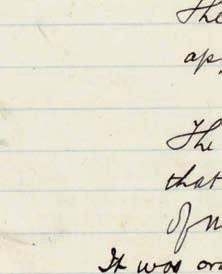 The
ap
The
that
of
It was or